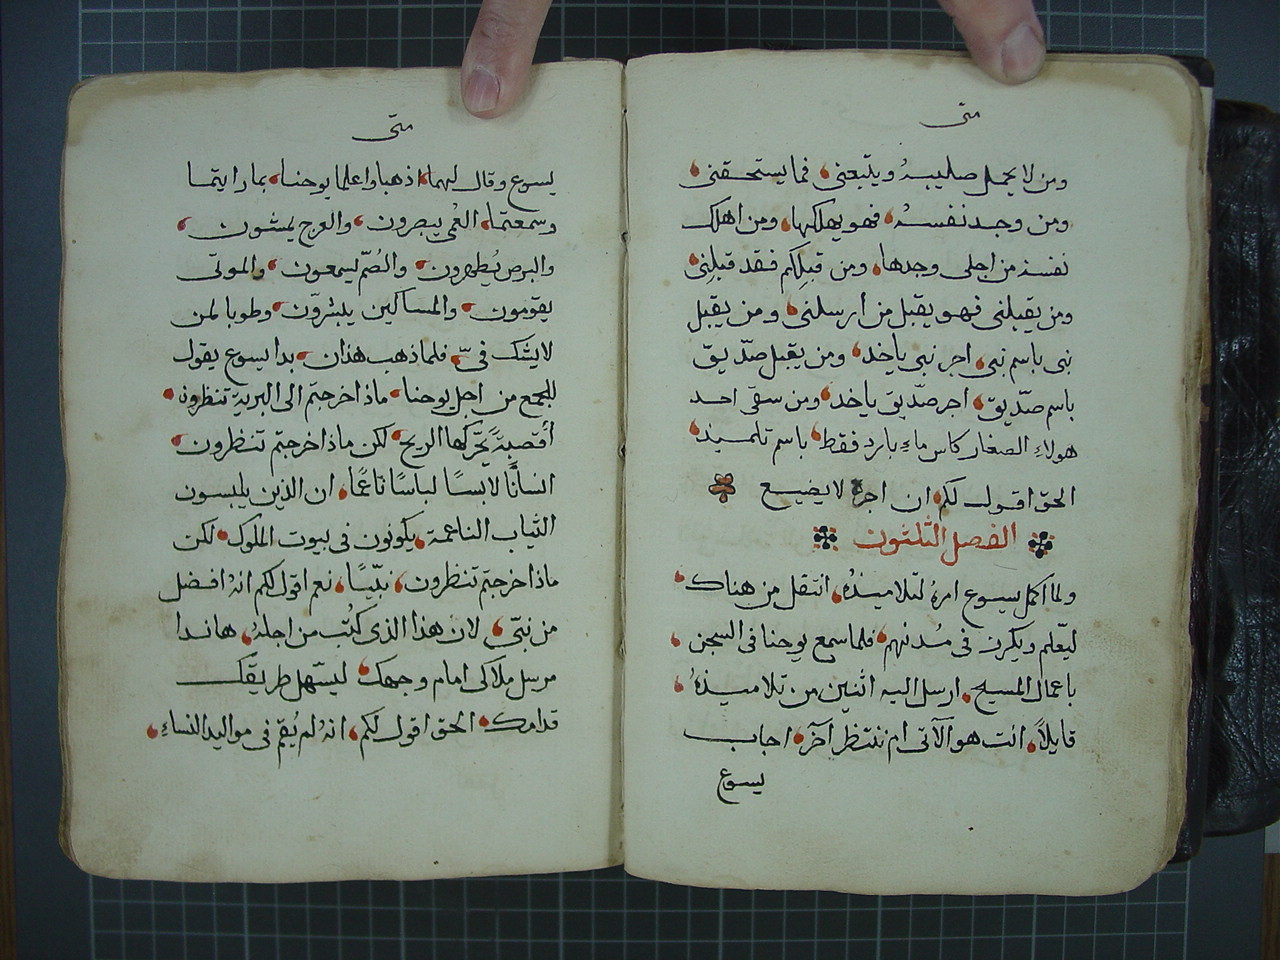 متى
ومن لا يحمل صليبهُ ويتبعنى، فما يستحقنى،
ومن وجد نفسهُ، فهو يهلكها، ومن اهلك
نفسهُ من اجلى وجدها، ومن قبلكم فقد قبلنى،
ومن يقبلنى فهو يقبل من ارسلنى، ومن يقبل
نبى باسم نبى، اجر نبى ياخد، ومن يقبل صدّيق
باسم صدّيق، اجر صدّيق ياخد، ومن سقى احد
هولاءِ الصغار كاس ماءِ بارد فقط، باسم تلميذ،
الحق اقول لكم ان اجره لا يضيع
الفصل الثلثون
ولما اكمل يسوع امرهُ لتلاميذهُ، انتقل من هناك،
ليعلّم ويكرز فى مُدنهم، فلما سمع يوحنا فى السجن،
باعمال المسيح، ارسل اليه اثنين من تلاميذهُ،
قايلاً، انت هو الآتى ام ننتظر آخر، اجاب
يسوع
متى
يسوع وقال لهما، اذهبا واعلما يوحنا، بما رايتما
وسمعتما، العُمي يبصرون، والعرج يمشون،
والبرص يُطهرون، والصُمّ يسمعون، والموتى
يقومون، والمساكين يبشرّون، وطوبا لمن
لا يشك فىّ، فلما ذهب هذان، بدا يسوع يقول
للجمع من اجل يوحنا، ماذا خرجتم الى البرية تنظرون،
أقصبةً يحرّكها الريح، لكن ماذا خرجتم تنظرون،
انسانًا لابسًا لباسًا ناعمًا، ان الذين يلبسون
الثياب الناعمة، يكونون فى بيوت الملوك، لكن
ماذا خرجتم تنظرون، نبيًّا، نعم اقول لكم انهُ افضل
من نبىّ، لان هذا الذى كُتب من اجلهُ، هاندا
مرسل ملاكى امام وجهك، ليسّهل طريقك
قدامك، الحق اقول لكم، انهُ لم يُقم فى مواليد النساءِ،